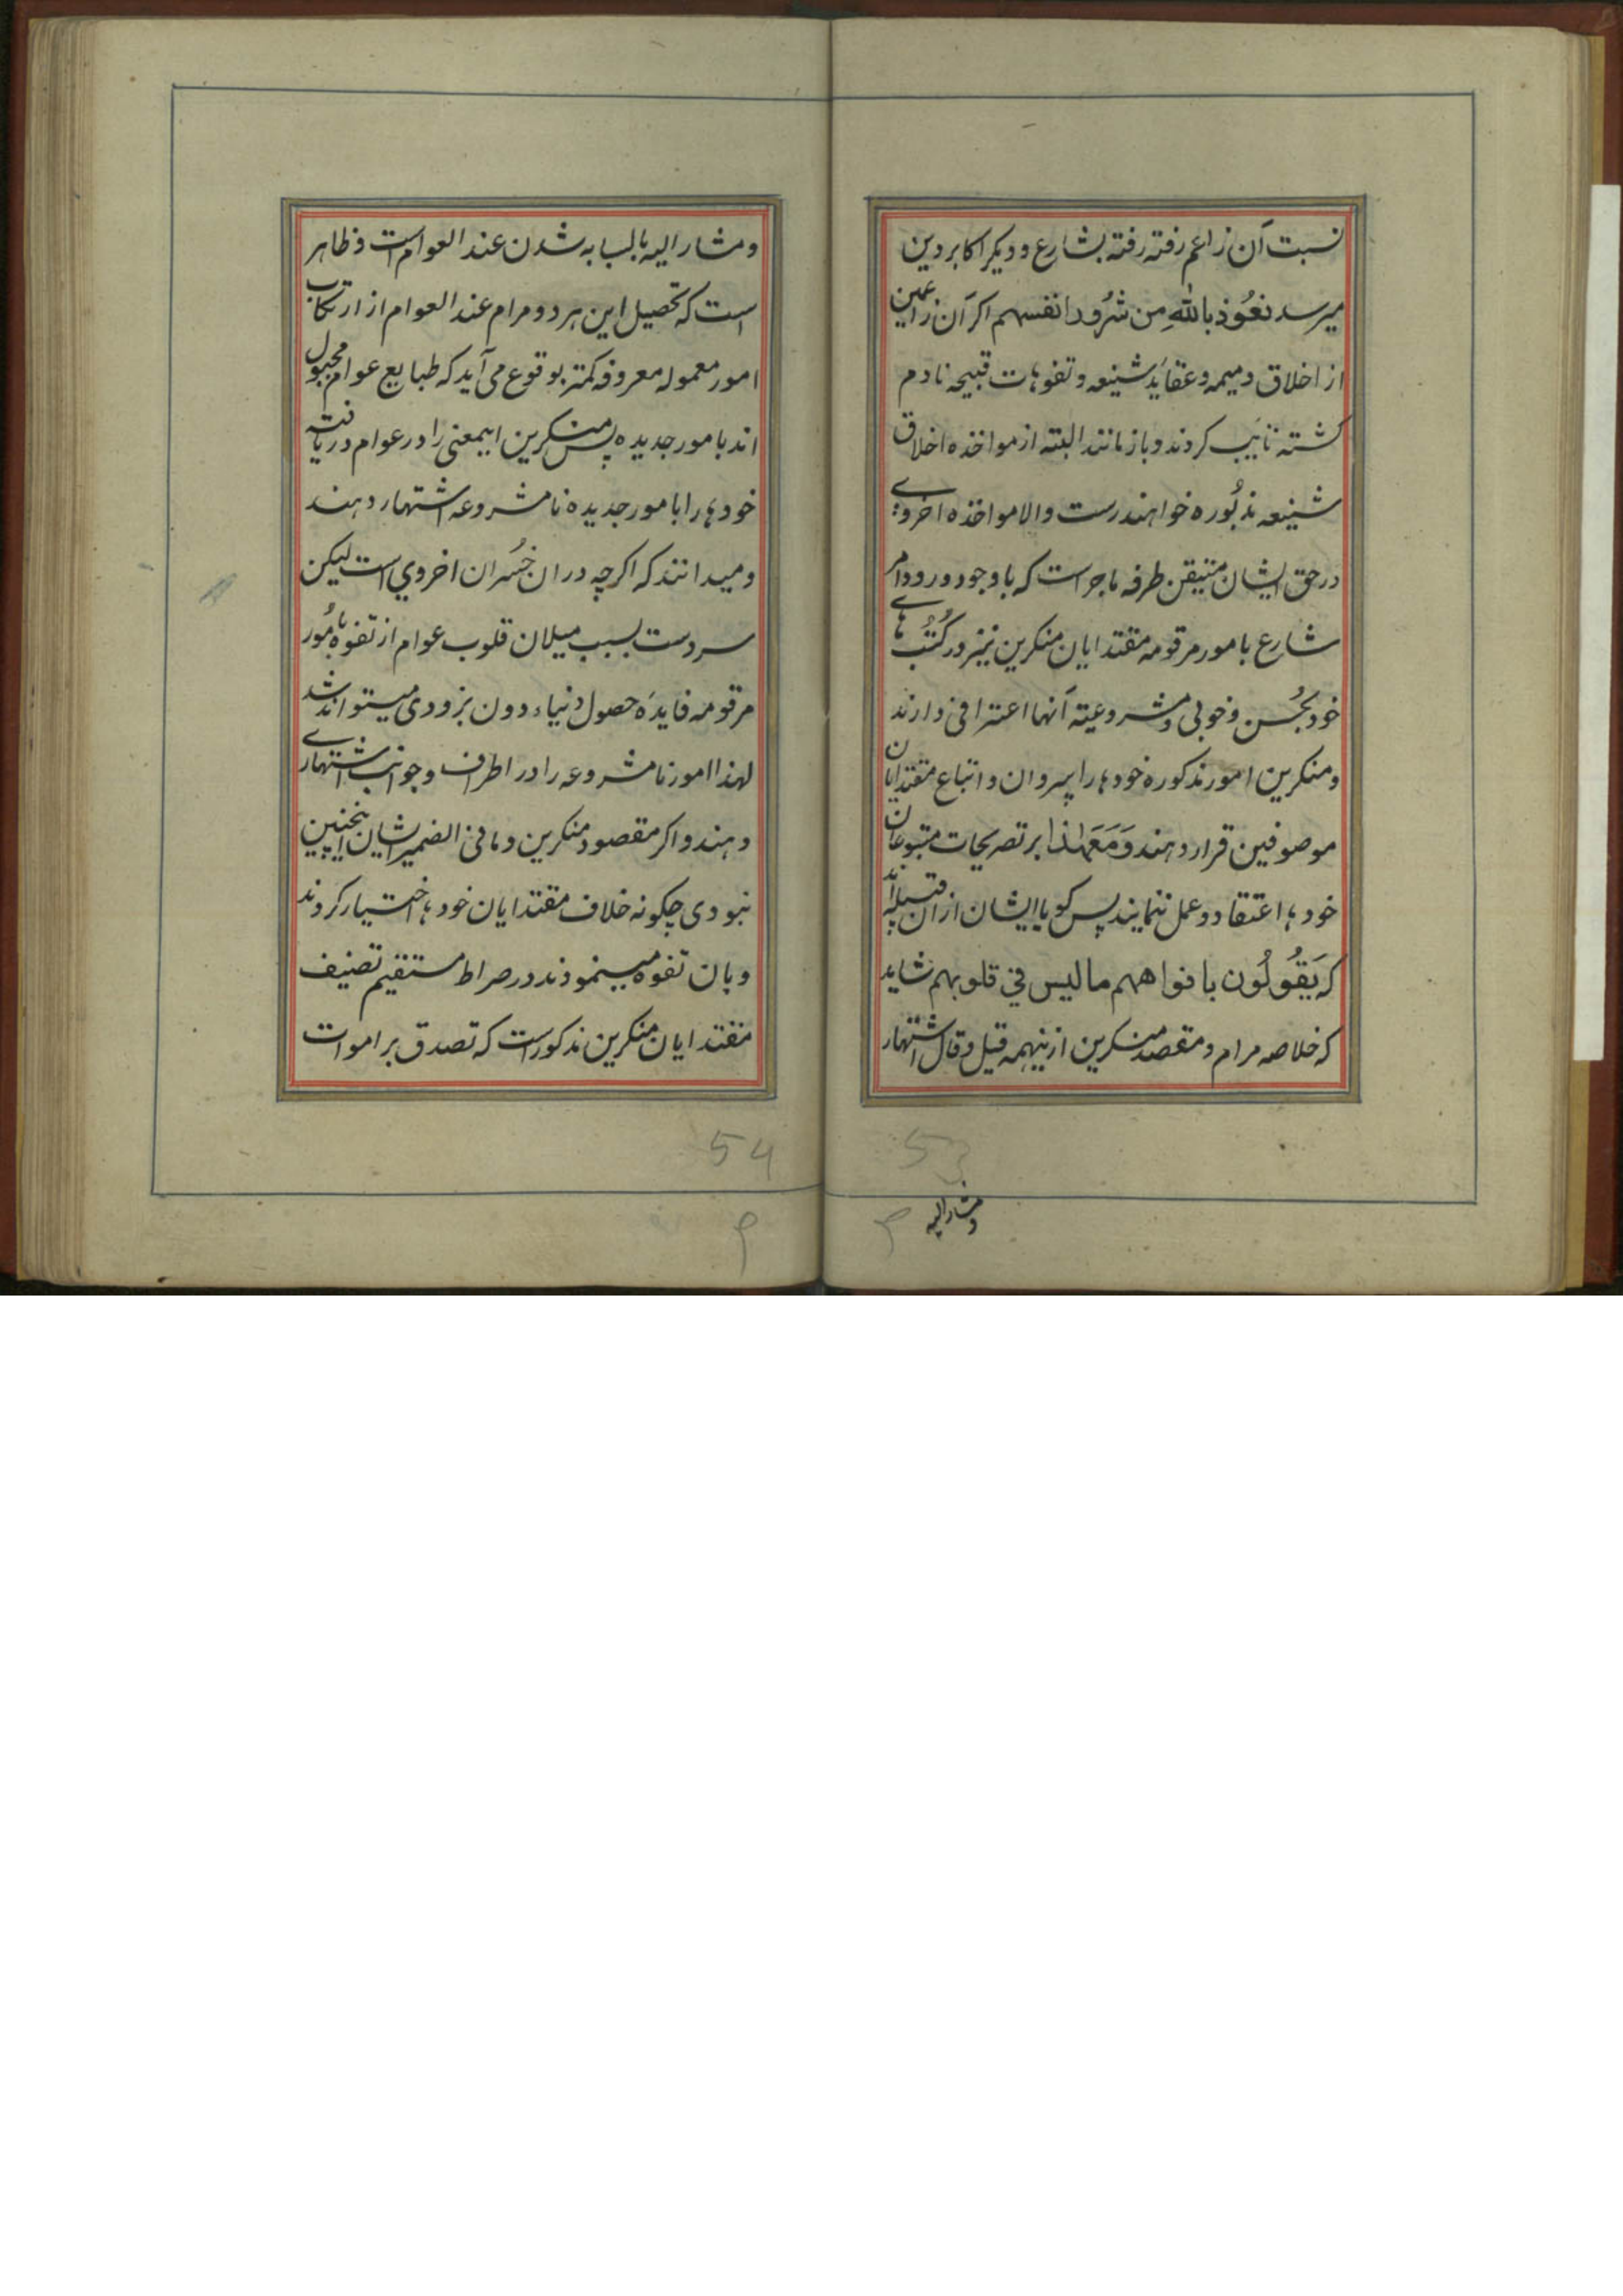 نسبت آن زاعم رفته رفته بشارع و دیکر اکابر دین
میرسد نعُوذ باللهِ مِن شرُور انفسهم اکر آن زاعمین
از اخلاق ذمیمه و عقاید شنیعه و تفوهات قبیحه نادم
کشته تایب کردند و باز مانند البته از مواخذه اخلاق
شنیعه مذبُوره خواهند رست و الا مواخذه اخروی
در حق ایشان متیقن طرفه ماجراست که باوجود ورود امر
شارع بامور مرقومه مقتدایان منکرین نیز در کُتُب های
خود بحُسن و خوبی و مشروعیته آنها اعترافی دارند
و منکرین امور مذکوره خودها را پیروان و اتباع مقتدایان
موصوفین قرار دهند وَمَعَهٰذا بر تصریحات متبوعان
خودها اعتقاد و عمل ننمایند پس کویا ایشان ازان قبیله اند
که یَقُولُون بافواههم ما لیس فی قلوبهم شاید
که خلاصه مرام و مقصد منکرین ازینهمه قیل و قال اشتهار
و مشار الیه
53
و مشار الیه بالسبابه شدن عند العوام است و ظاهر
است که تحصیل این هر دو مرام عند العوام از ارتکاب
امور معموله معروفه کمتر بوقوع می آید که طبایع عوام مجبول
اند بامور جدیده پس منکرین اینمعنی را در عوام دریافته
خودها را بامور جدیده نامشروعه اشتهار دهند
و میدانند که اکرچه دران خُسران اخروي است لیکن
سردست بسبب میلان قلوب عوام از تفوه بامُور
مرقومه فایدهٔ حصول دنیاء دون بزودی میتواند شد
لهذا امور نامشروعه را در اطراف و جوانب اشتهاری
دهند و اکر مقصود منکرین و مافی الضمیر ایشان اینچنین
نبودی چکونه خلاف مقتدایان خودها اختیار کردند
و بان تفوه مینمودند در صراط مستقیم تصنیف
مقتدایان منکرین مذکور است که تصدق بر اموات
54